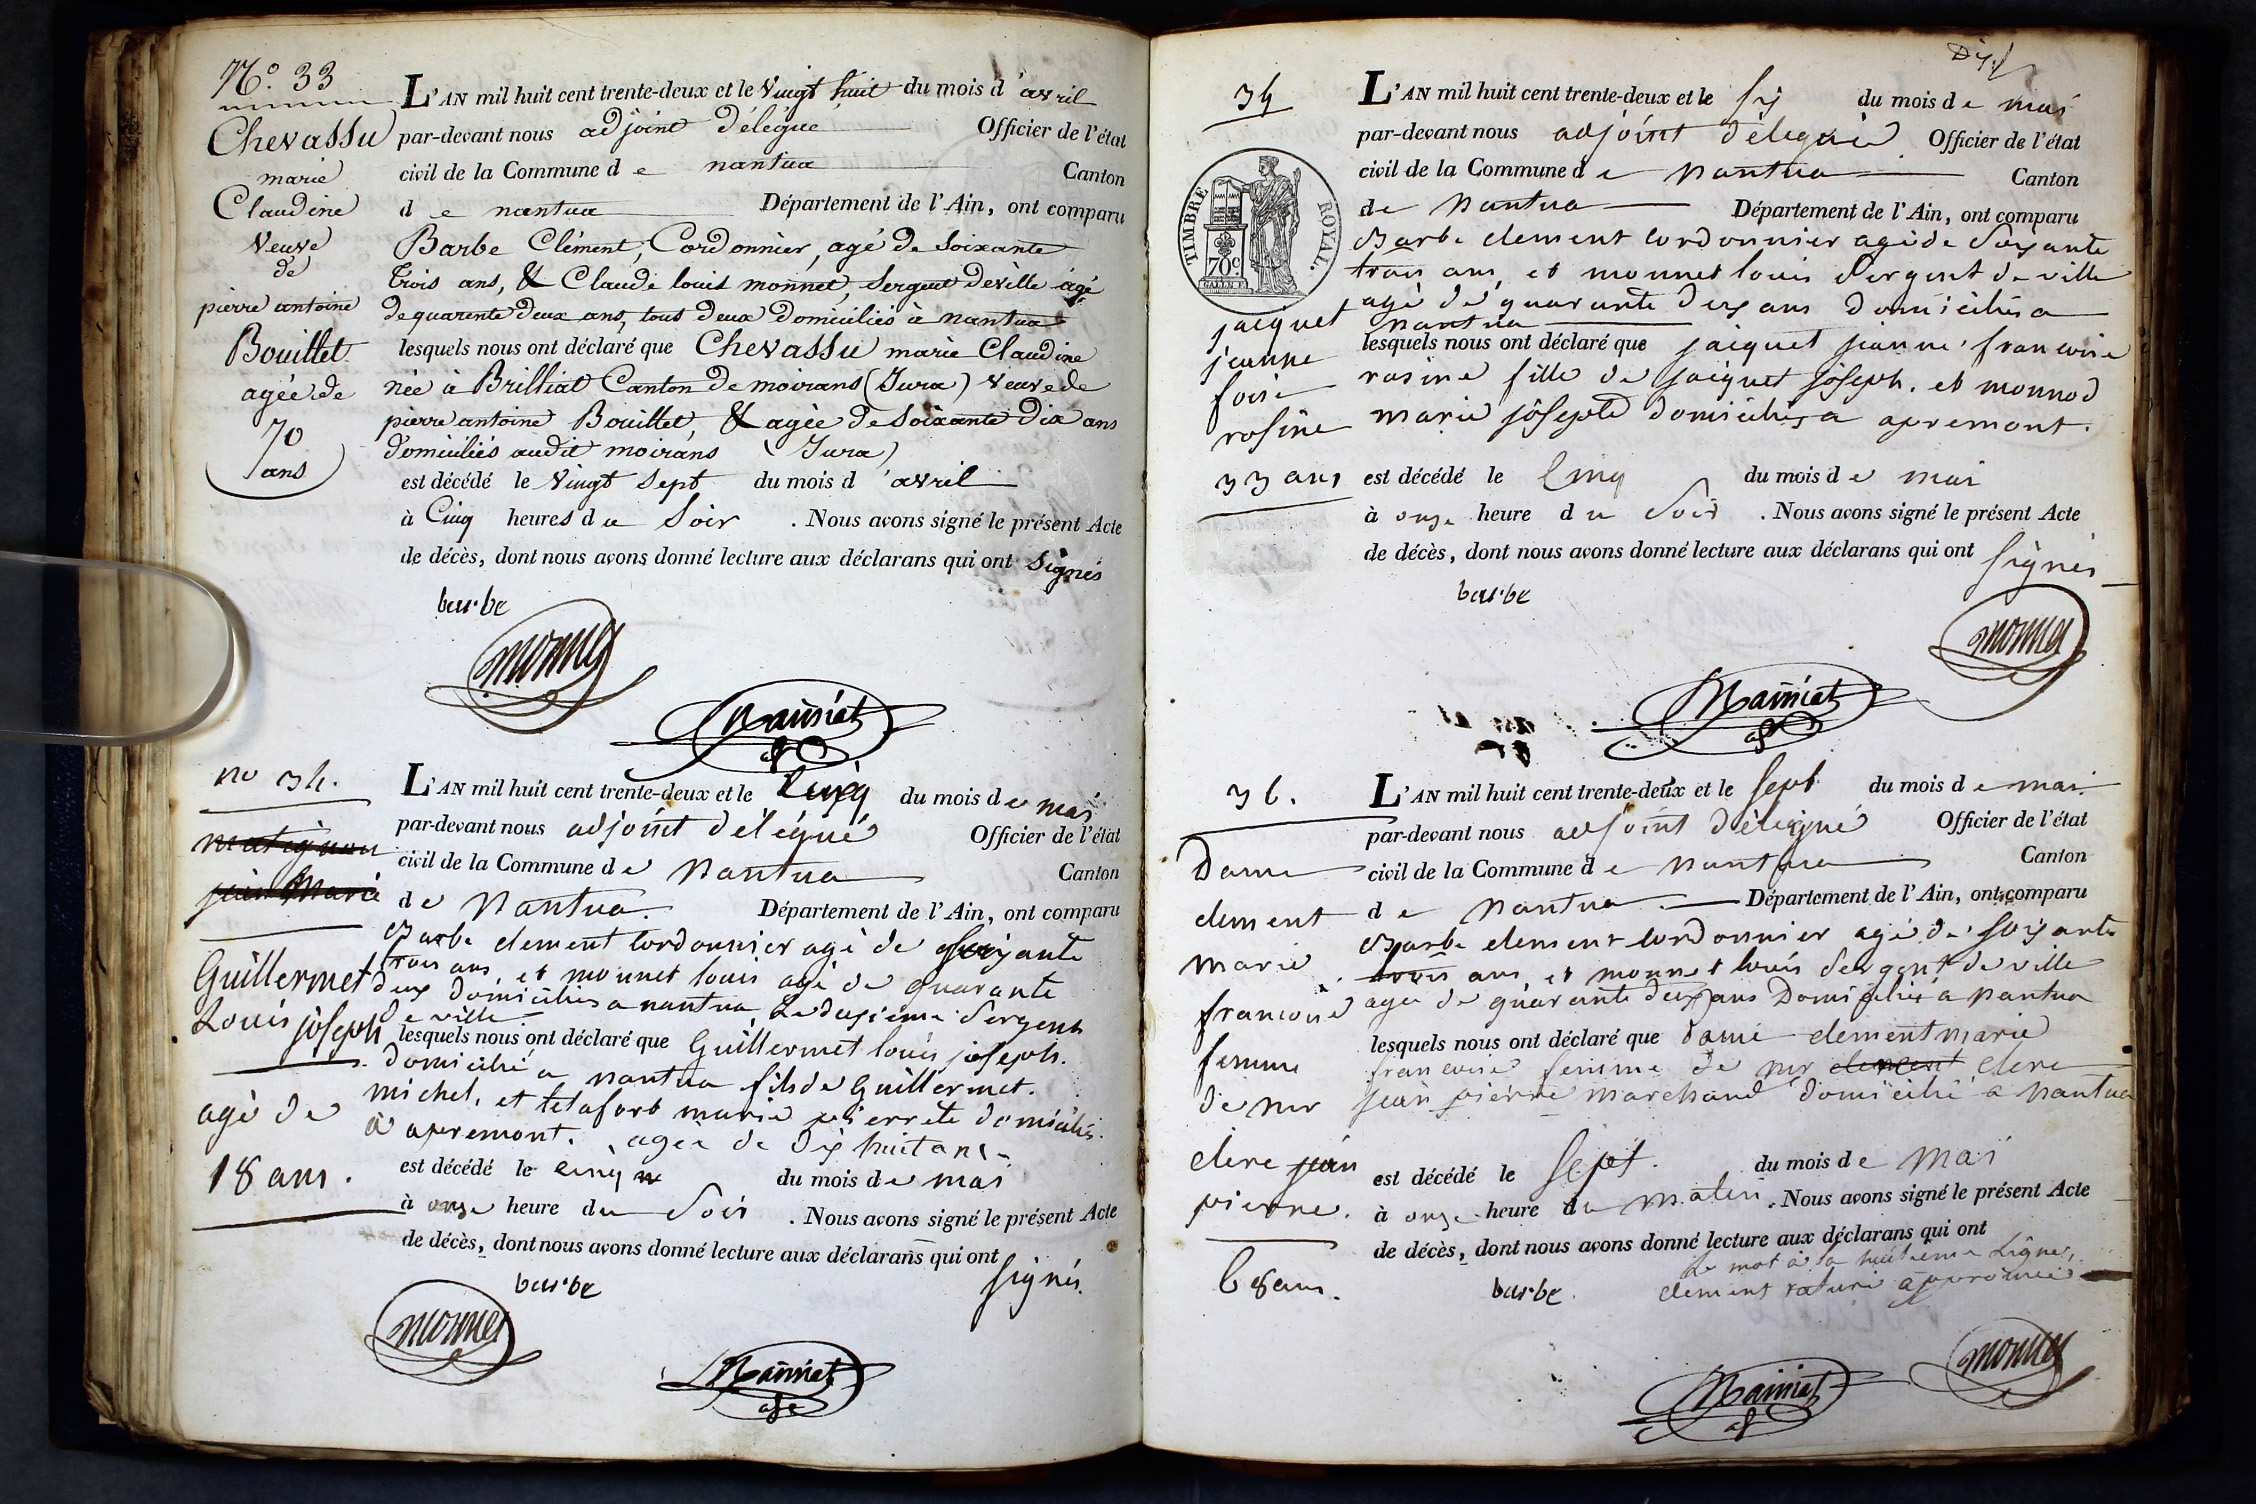 N.° 33
Chevassu
marie
Claudine
Veuve
de
pierre antoine
Bouillet
agée de
70
ans
L'AN mil huit cent trente-deux et le Vingt huit du mois d'avril
par-devant nous adjoint délégué Officier de l'état
civil de la Commune de nantua Canton
de nantua Département de l'Ain, ont comparu
Barbe Clément, Cordonnier, agé de Soixante
trois ans, & Claude louis monnet, Sergent de ville agé
de quarente deux ans, tous deux Domiciliés à nantua
lesquels nous ont déclaré que Chevassu marie Claudine
née à Brilliat Canton de moirans (Jura) Veuve de
pierre antoine Bouillet, & agée de Soixante Dix ans
domiciliés audit moirans (Jura)
est décédé le Vingt Sept du mois d'avril
à Cinq heures du Soir. Nous avons signé le présent Acte
de décès, dont nous avons donné lecture aux déclarans qui ont Signés
barbe
monnet
no 34.
matignon
jean Marie
Guillermet
Louis joseph
agé de
18 ans.
L'AN mil huit cent trente-deux et le Cinq du mois de mai
par-devant nous adjoint délégué Officier de l'état
civil de la Commune de Nantua Canton
de Nantua. Département de l'Ain, ont comparu
Barbe clement Cordonnier agé de Soixante
trois ans, et monnet louis agé de quarante
deux domiciliés a nantua Le deuxieme Sergent
de ville
lesquels nous ont déclaré que Guillermet louis joseph.
domicilié a nantua fils de Guillermet.
michel, et marie pierrete domiciliés
à apremont. agée de dix huit ans
est décédé le cinq du mois de mai
à onze heure du Soir. Nous avons signé le présent Acte
de décès, dont nous avons donné lecture aux déclarans qui ont
signés.
barbe
monnet
34
TIMBRE ROYAL.
70 c
jacquet
jeanne
foise
rosine
33 ans
L'AN mil huit cent trente-deux et le six du mois de mai
par-devant nous adjoint délégué Officier de l'état
civil de la Commune de Nantua Canton
de Nantua Département de l'Ain, ont comparu
Barbe clement Cordonnier agé de Soixante
trois ans, et monnet louis Sergent de ville
agé de quarante deux ans domiciliés a
nantua
lesquels nous ont déclaré que jacquet jeanne francoise
rosine fille de jacquet joseph. et monnod
marie josepte domiciliés a apremont.
est décédé le Cinq du mois de mai
à onze heure du Soir. Nous avons signé le présent Acte
de décès, dont nous avons donné lecture aux déclarans qui ont signés
barbe
monnet
36.
Dame
clement
marie
francoise
femme
de mr
clerc jean
pierre.
68 ans.
L'AN mil huit cent trente-deux et le sept du mois de mai
par-devant nous adjoint délégué Officier de l'état
civil de la Commune de nantua Canton
de Nantua. Département de l'Ain, ont comparu
Barbe clement Cordonnier agé de Soixante
trois ans et monnet louis Sergent de ville
agée de quarante deux ans Domiciliés a Nantua
lesquels nous ont déclaré que dame clement marie
francoise femme de mr clement clerc
jean pierre marchand domicilié a Nantua
est décédé le Sept. du mois de mai
à onze heure du matin. Nous avons signé le présent Acte
de décès, dont nous avons donné lecture aux déclarans qui ont
Le mot à la huitieme Ligne,
clement raturé approuvé
barbe
monnet